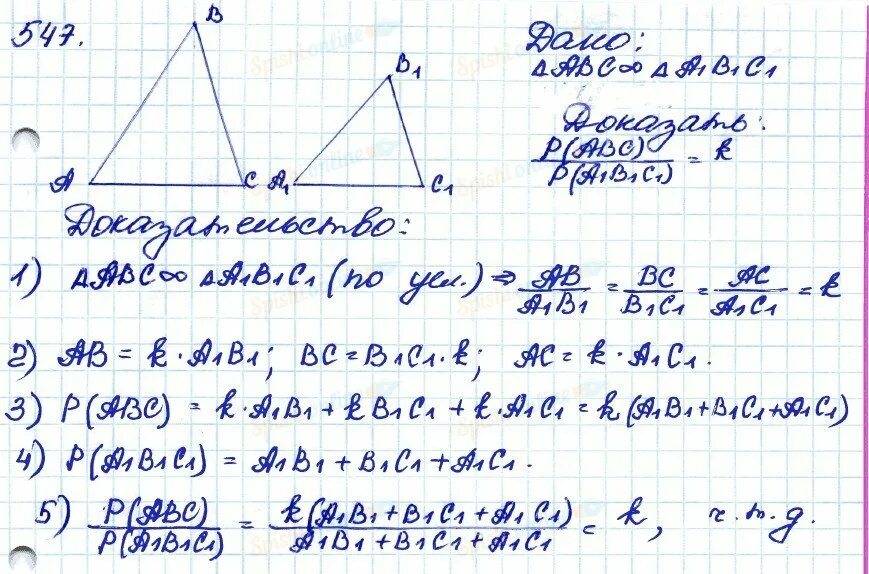 547.
B
A
C
B1
A1
C1
Дано:
△ABC∞△A1B1C1
Доказать:
P(ABC)/P(A1B1C1) = k
Доказательство:
1) △ABC∞△A1B1C1 (по усл.) ⇒ AB/A1B1 = BC/B1C1 = AC/A1C1 = k
2) AB = k·A1B1; BC = B1C1·k; AC = k·A1C1.
3) P(ABC) = k·A1B1 + kB1C1 + k·A1C1 = k(A1B1+B1C1+A1C1)
4) P(A1B1C1) = A1B1 + B1C1 + A1C1.
5) P(ABC)/P(A1B1C1) = k(A1B1 + B1C1 + A1C1)/A1B1 + B1C1 + A1C1 = k, ч.т.д.